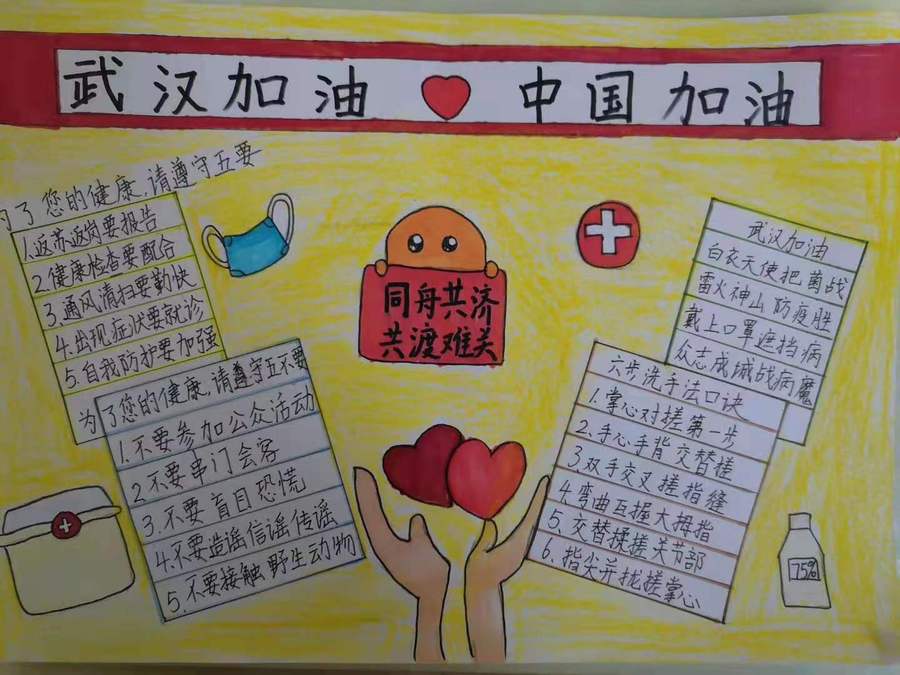 武汉加油 中国加油
为了您的健康,请遵守五要
1.返苏返岗要报告
2.健康检查要配合
3.通风清扫要勤快
4.出现症状要就诊
5.自我防护要加强
为了您的健康,请遵守五不要
1.不要参加公众活动
2.不要串门会客
3.不要盲目恐慌
4.不要造谣信谣传谣
5.不要接触野生动物
同舟共济
共渡难关
武汉加油
白衣天使把菌战
雷火神山防疫胜
戴上口罩遮挡病
众志成城战病魔
六步洗手法口诀
1.掌心对搓第一步
2.手心手背交替搓
3.双手交叉搓指缝
4.弯曲互握大拇指
5.交替揉搓关节部
6.指尖并拢搓掌心
75%